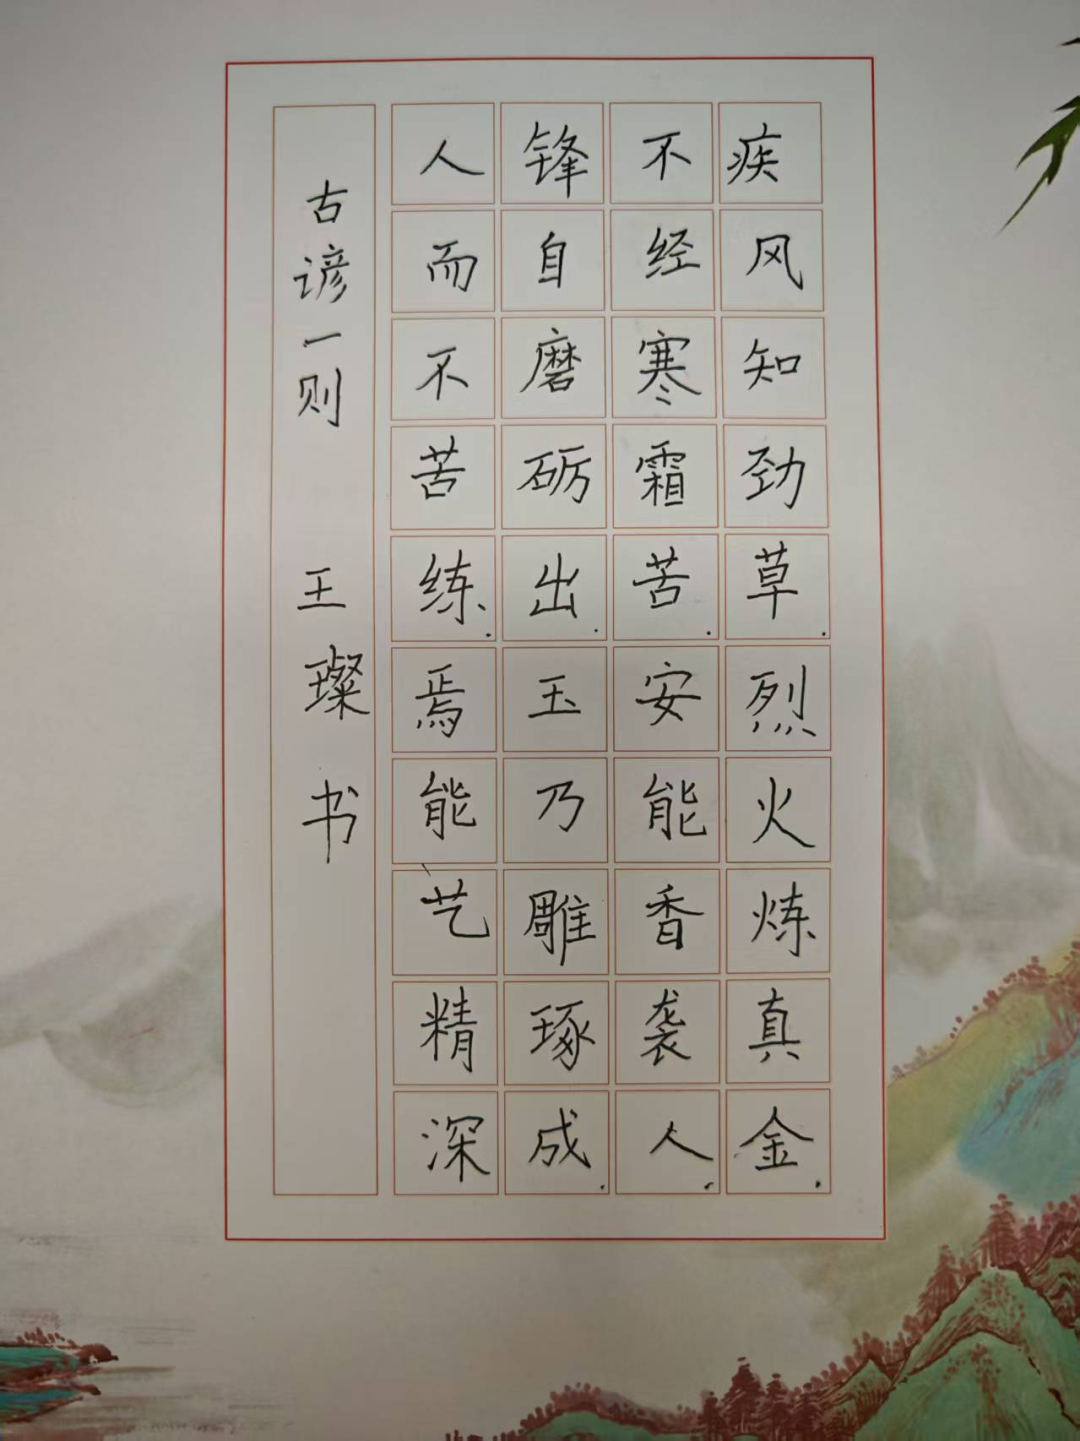 疾风知劲草.烈火炼真金.
不经寒霜苦.安能香袭人.
锋自磨砺出.玉乃雕琢成.
人而不苦练.焉能艺精深
古谚一则 王璨书